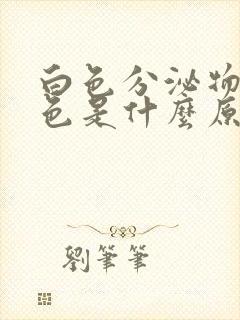 白色分泌物
色是什麼原
劉筆筆